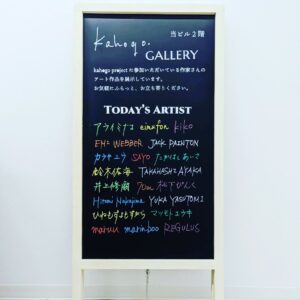 kahogo.
当ビル2階
GALLERY
kahogo projectに参加いただいている作家さんの
アート作品を展示しています。
お気軽にふらっと、お立ち寄りください。
TODAY'S ARTIST
アライミナミ einafon kiko
EMI WEBBER JACK PAINTON
カワキユウ SAYO たかはしあいさ
鈴木佑海 TAKAHASHI AYAKA
井上修爾
Hitomi Nakajima YUKA YASUTOMI
ひねもすよもすがら マツモトユウキ
maruu marinboo REGULUS